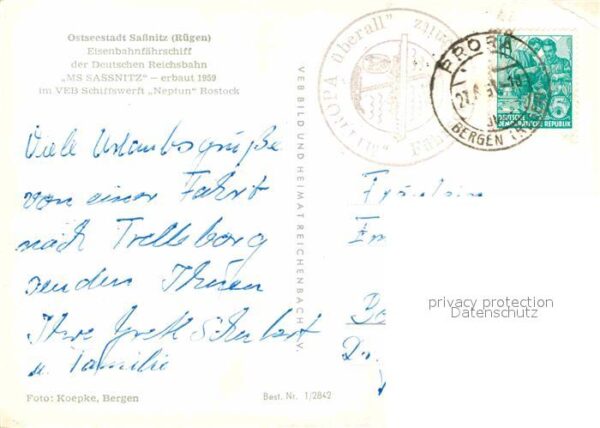 Ostseestadt Saßnitz (Rügen)
Eisenbahnfährschiff
der Deutschen Reichsbahn
„MS SASSNITZ" — erbaut 1959
im VEB Schiffswerft „Neptun" Rostock
Viele Urlaubsgrüße
von einer Fahrt
nach Trelleborg
senden Ihnen
Ihre
u. Familie
Foto: Koepke, Bergen
Best. Nr. 1/2842
VEB BILD UND HEIMAT REICHENBACH I. V.
MITROPA überall"
PRORA
BERGEN
DEUTSCHE
DEMOKRATISCHE REPUBLIK
5
Fräulein
privacy protection
Datenschutz